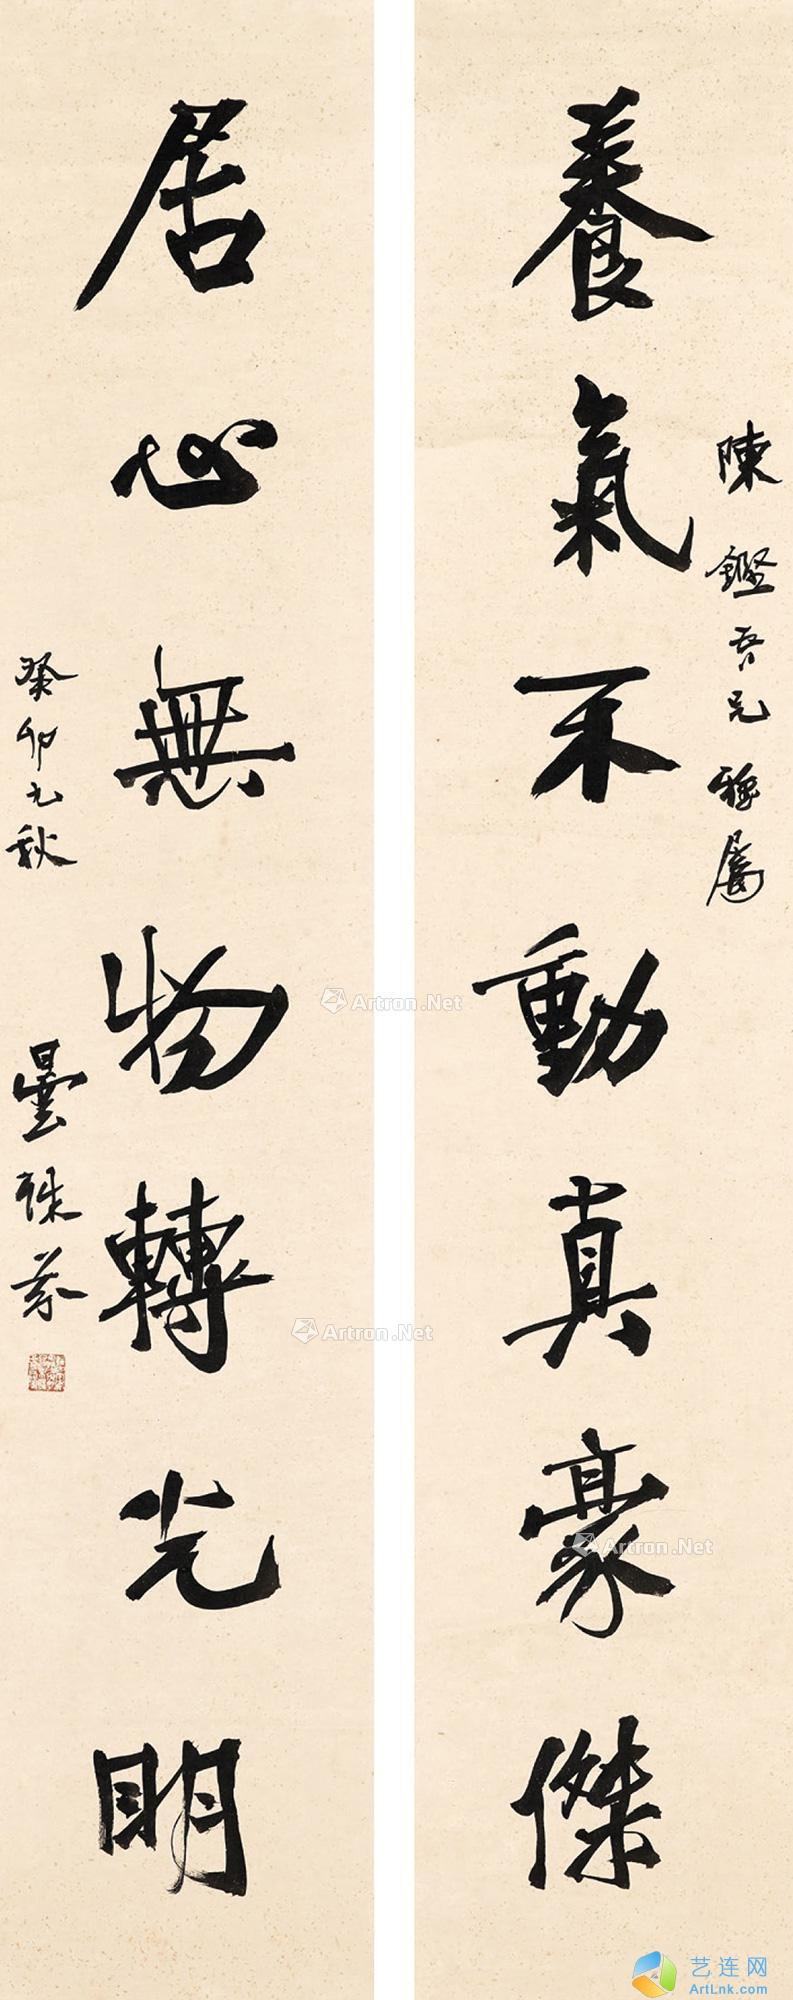 養氣不動真豪傑
陳鏗吾兄雅屬
居心無物轉光明
癸卯九秋
曇殊蒙
Artron.Net
Artron.Net
Artron.Net
艺连网
ArtLnk.com